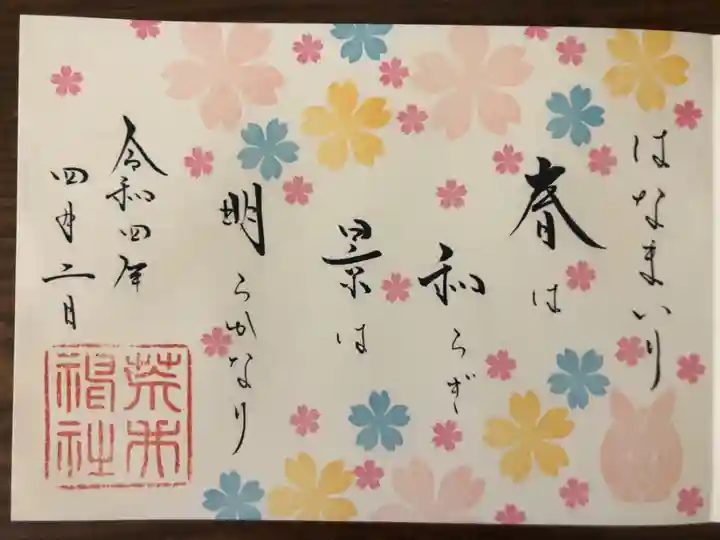 はなまいり
春は
和らぎ
景は
明らかなり
令和四年
四月二日
荒井
神社